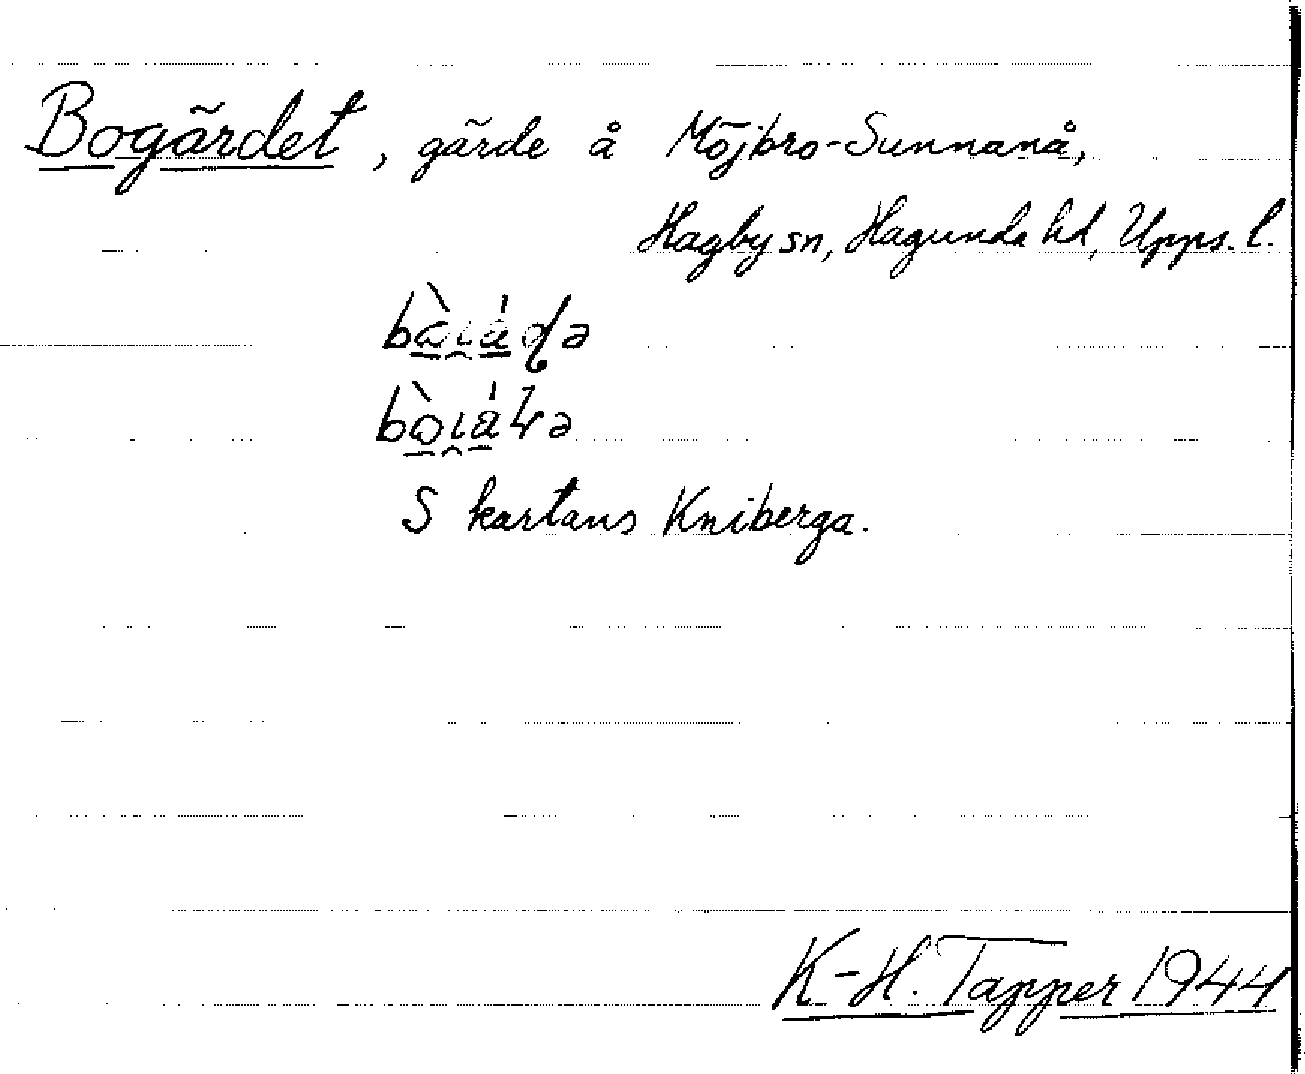 Bogärdet, gärde å Möjbro-Sunnanå,
Hagby sn, Hagunda hd, Upps. l.
S kartans Kniberga.
K-H. Tapper 1944